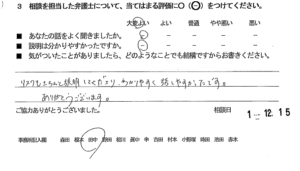 3 相談を担当した弁護士について、当てはまる評価に○（○）をつけてください。
大変よい よい 普通 やや悪い 悪い
■ あなたの話をよく聞きましたか。
■ 説明は分かりやすかったですか。
■ 気がついたことがありましたら、どのようなことでも結構ですからお書きください。
リスクもきちんと説明してくださり、わかりやすく話しやすかったです。
ありがとうございます。
ご協力ありがとうございました。 相談日 1-12.15
事務所記入欄 森田 田中 相川 中 吉田 村本 小野塚 池田 青木